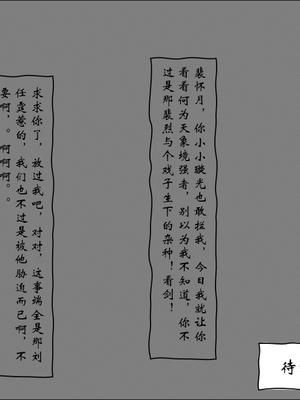 裴怀月,你小小璇光也敢拦我,今日我就让你
看看何为天象境强者,别以为我不知道,你不
过是那裴烈与个戏子生下的杂种!看剑!
求求你了,放过我吧,对对,这事端全是那刘
任霆惹的,我们也不过是被他胁迫而已啊,不
要啊,。啊啊啊。。
待